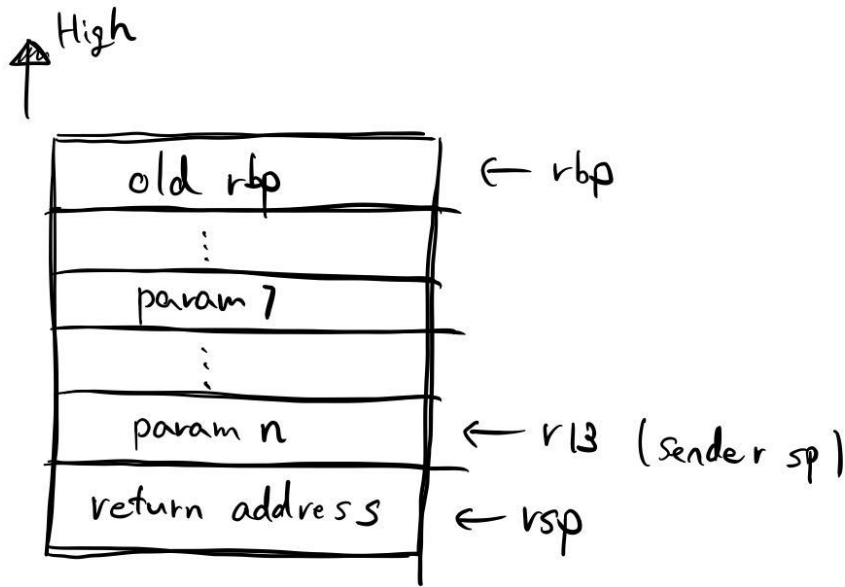 High
old rbp ← rbp
⋮
param 7
⋮
param n ← r13 (sender sp)
return address ← rsp